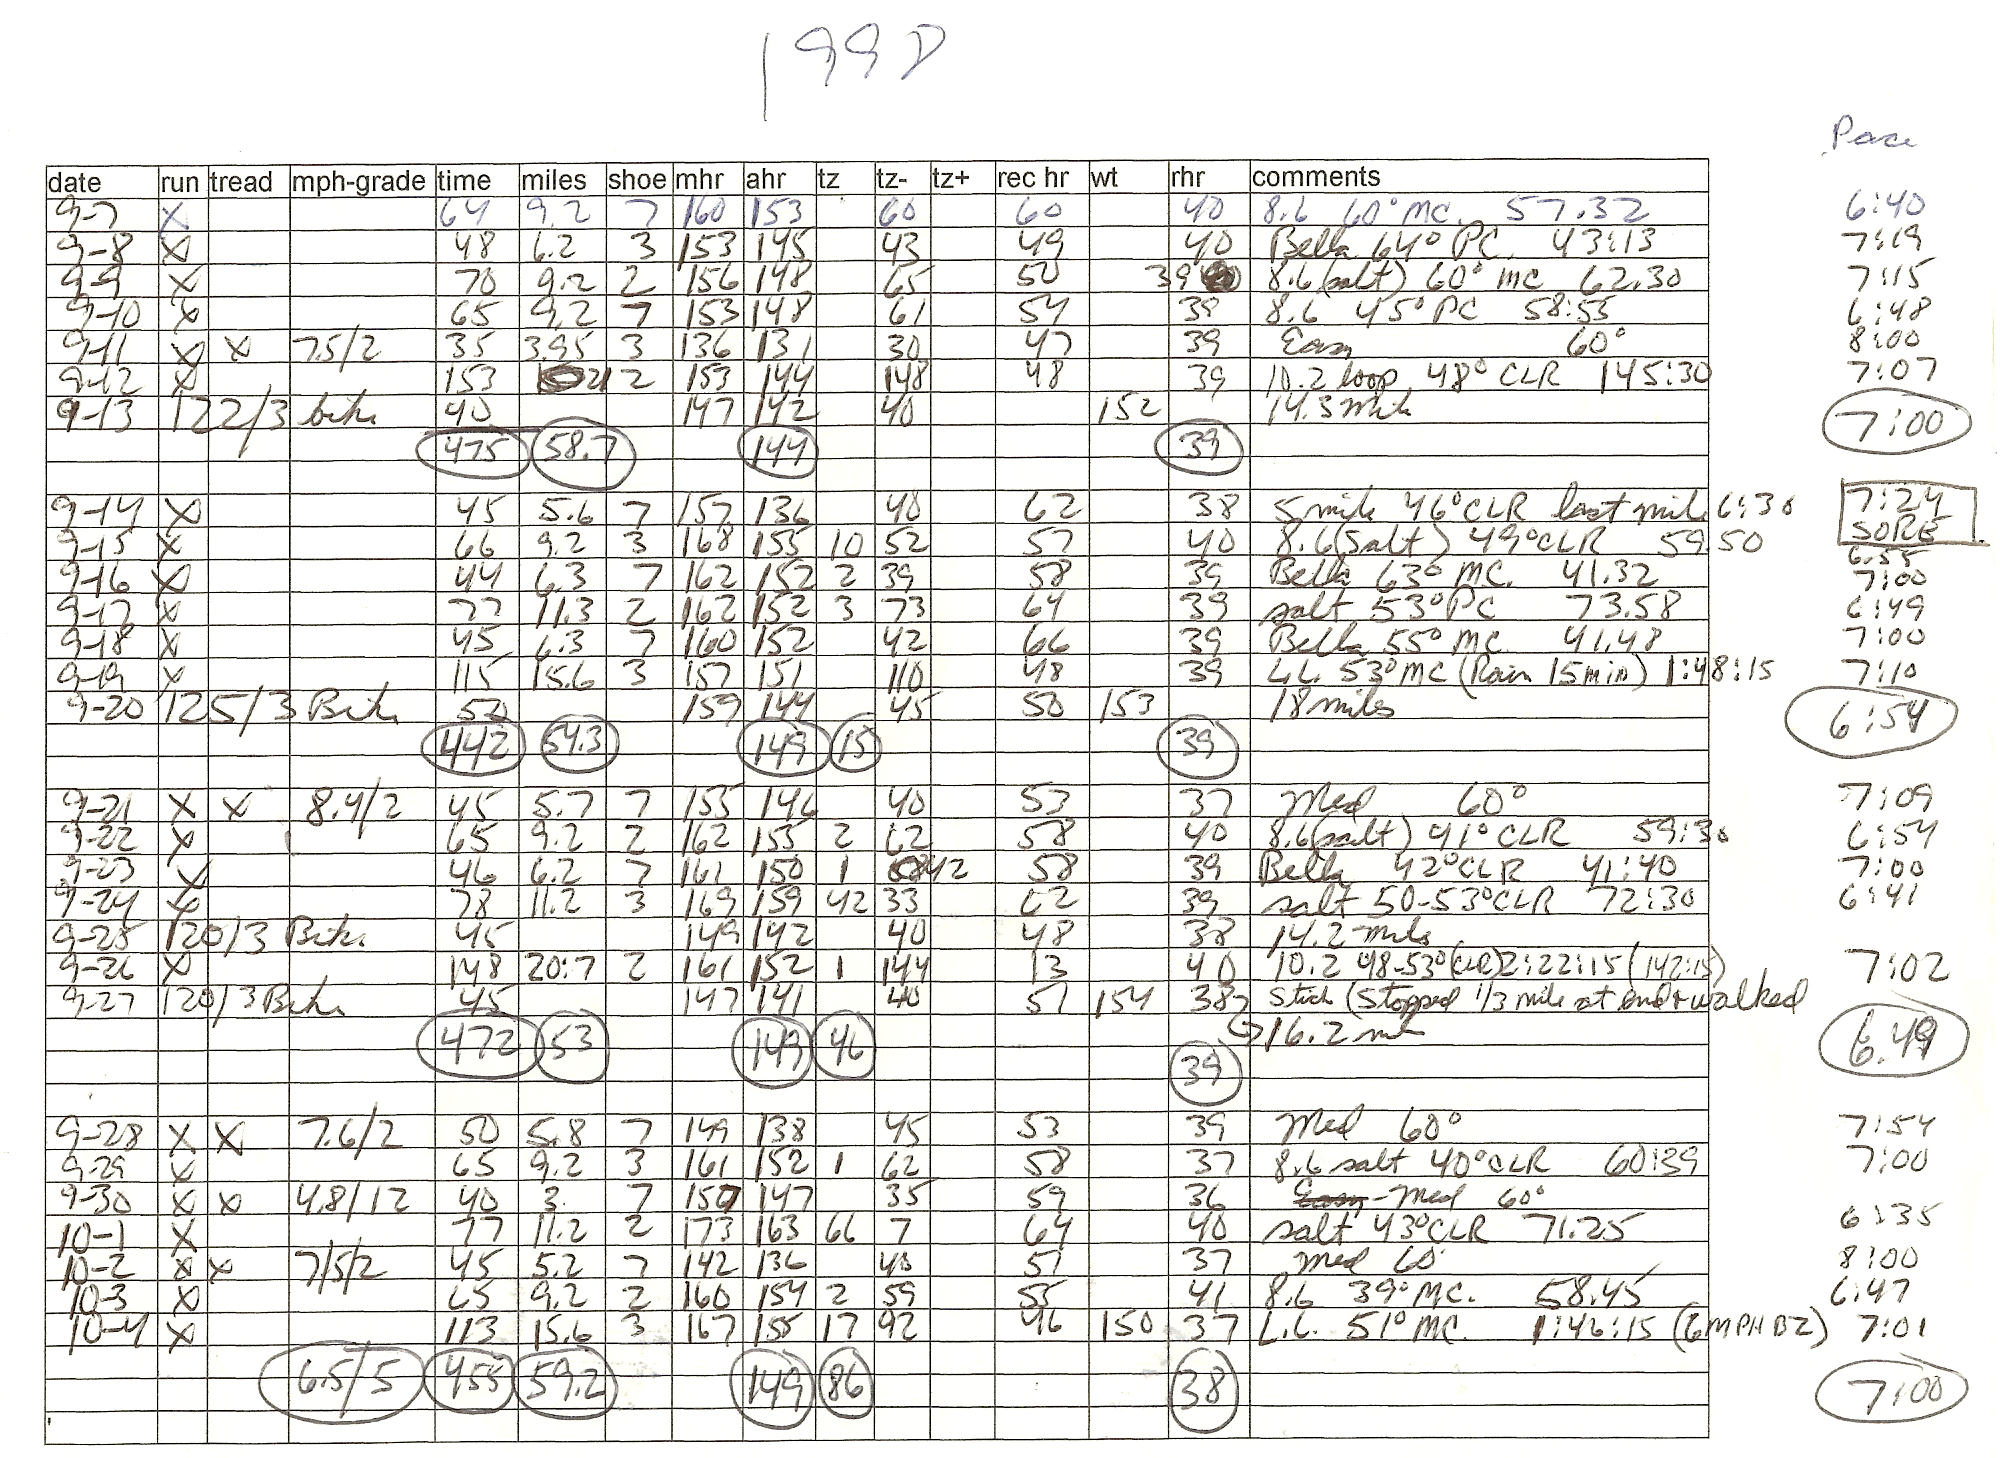 199D
Pace
date run tread mph-grade time miles shoe mhr ahr tz tz- tz+ rec hr wt rhr comments
9-7 X 64 9.2 7 160 153 60 60 40 8.6 60° MC. 57.32 6:40
9-8 X 48 6.2 3 153 145 43 49 40 Bella 64° PC 43:13 7:19
9-9 X 70 9.2 2 156 148 65 50 39 8.6 (salt) 60° MC 62.30 7:15
9-10 X 65 9.2 7 153 148 61 54 39 8.6 45° PC 58:55 6:48
9-11 X X 7.5/2 35 3.95 3 136 131 30 47 39 Easy 60° 8:00
9-12 X 153 21 2 153 144 148 48 39 10.2 loop 48° CLR 145:30 7:07
9-13 122/3 bike 40 147 142 40 152 14.3 mile
475 58.7 144 39 7:00
9-14 X 45 5.6 7 157 136 40 62 38 5 mile 46° CLR last mile 6:30 7:24 SORE
9-15 X 66 9.2 3 168 155 10 52 57 40 8.6 (salt) 49° CLR 59.50 6.55
9-16 X 44 6.3 7 162 152 2 39 58 39 Bella 63° MC. 41.32 7:00
9-17 X 77 11.3 2 162 152 3 73 64 39 salt 53° PC 73.58 6:49
9-18 X 45 6.3 7 160 152 42 66 39 Bella 55° MC. 41.48 7:00
9-19 X 115 15.6 3 157 151 110 48 39 L.L. 53° MC (Rain 15 min) 1:48:15 7:10
9-20 125/3 Bike 50 159 144 45 50 153 18 miles
442 54.3 149 15 39 6:54
9-21 X X 8.4/2 45 5.7 7 155 146 40 53 37 Med 60° 7:09
9-22 X 65 9.2 2 162 155 2 62 58 40 8.6 (salt) 41° CLR 59:30 6:54
9-23 X 46 6.2 7 161 150 1 42 58 39 Bella 42° CLR 41:40 7:00
9-24 X 78 11.2 3 169 159 42 33 62 39 salt 50-53° CLR 72:30 6:41
9-25 120/3 Bike 45 149 142 40 48 38 14.2 miles
9-26 X 148 20:7 2 161 152 1 144 13 40 10.2 48-53° (CLR) 2:22:15 (142:15) 7:02
9-27 120/3 Bike 45 147 141 40 51 154 38 Stich (Stopped 1/3 mile at end + walked
16.2 mi
472 53 149 46 39 6.49
9-28 X X 7.6/2 50 5.8 7 149 138 45 53 39 Med 60° 7:54
9-29 X 65 9.2 3 161 152 1 62 58 37 8.6 salt 40° CLR 60:39 7:00
9-30 X X 4.8/12 40 3. 7 157 147 35 59 36 Easy-Med 60°
10-1 X 77 11.2 2 173 163 66 7 64 40 salt 43° CLR 71.25 6:35
10-2 X X 7/5/2 45 5.2 7 142 136 40 51 37 med 60° 8:00
10-3 X 65 9.2 2 160 154 2 59 55 41 8.6 39° MC. 58.45 6:47
10-4 X 113 15.6 3 167 155 17 92 46 150 37 L.L. 51° MC. 1:46:15 (6 MPH BZ) 7:01
6.5/5 455 59.2 149 86 38 7:00